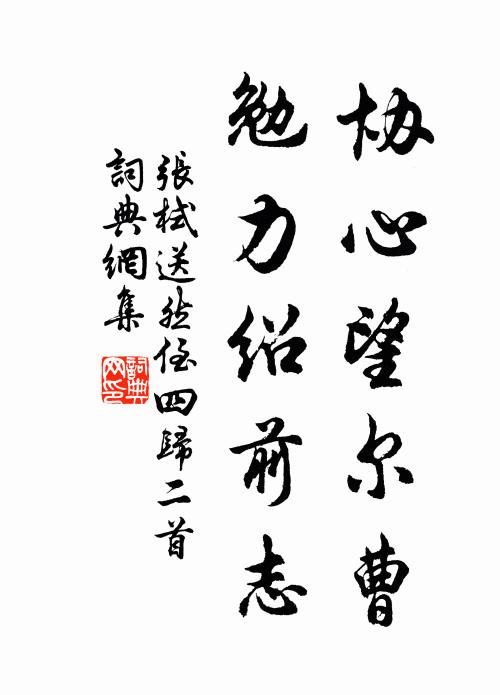 协心望尔曹
勉力绍前志
張栻送然侄四歸二首
詞典網集
詞典
网印